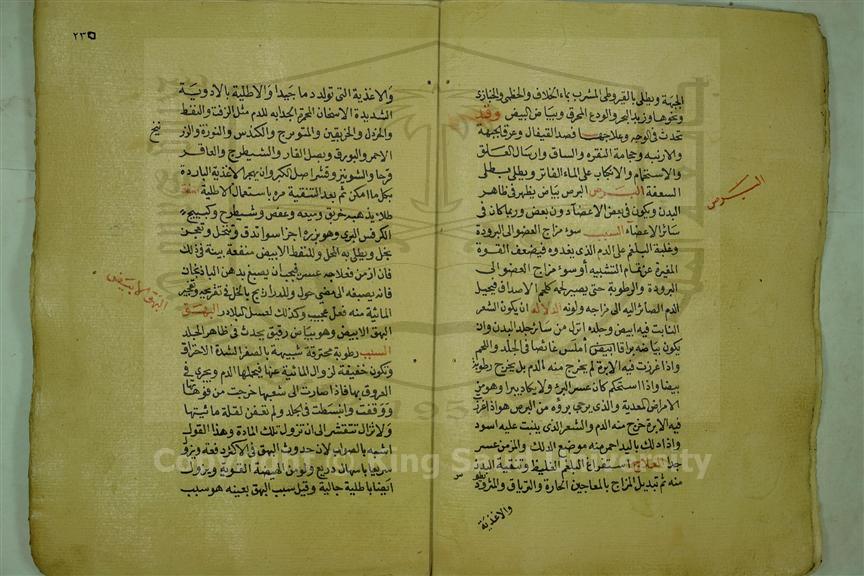 الجبهة ويطلى بالقيروطى المشرب بماء الخلاف والخطمى والخبازى
ونحوها وزبد البحر والودع المحرق وبياض البيض وقد
تحدث فى الوجه وعلاجها فصد القيفال وعرق الجبهة
والارنبه وحجامة النقره والساق وارسال العلق
والاستحمام والانكباب على الماء الفاتر ويطلى بطلى
السعفة البرص البرص بياض يظهر فى ظاهر
البدن ويكون فى بعض الاعضاء دون بعض وربما كان فى
سائر الاعضاء السبب سوء مزاج العضو الى البرودة
وغلبة البلغم على الدم الذى يغذوه فيضعف القوة
المغيرة عن تمام التشبيه او سوء مزاج العضو الى
البرودة والرطوبة حتى يصير لحمه كلحم الاصداف فيحيل
الدم الصائر اليه الى مزاجه ولونه الدلالة ان يكون الشعر
النابت فيه ابيض وجلده انزل من سائر جلد البدن وان
يكون بياضه براقا ابيض املس غائصا فى الجلد واللحم
واذا غرزت فيه الابرة لم يخرج منه الدم بل يخرج رطوبة
بيضا واذا استحكم كان عسر البرء ولا يكاد يبرا وهو من
الامراض المعدية والذى يرجى برؤه من البرص هو اذا غرز
فيه الابرة خرج منه الدم والشعر الذى ينبت عليه اسود
واذا دلك باليد احمر منه موضع الدلك والمزمن عسر
جدا العلاج استفراغ البلغم الغليظ وتنقية البدن
منه ثم تبديل المزاج بالمعاجين الحارة والترياق
والاغذية
البرص
٢٣٥
والاغذية التى تولد دما جيدا والاطلية بالادوية
الشديدة الاسخان المحمرة الجذابه للدم مثل الزفت والنفط
والخردل والخربقين والكندس والنورة والزرنيخ
الاحمر والبورق وبصل الفار والشيطرج والعاقر
قرحا والشونيز وقشر اصل الكبر وان يهجر الاغذية الباردة
بكل ما امكن ثم بعد التنقية مره باستعمال الاطلية صفة
طلاء يذهبه خربق وميعه وعفص وشيطرج وكبيكج
الكرفس البرى وهو بزره اجزا سوا تدق وتنخل وتعجن
بخل ويطلى به المحل وللنفط الابيض منفعة بينة فى ذلك
فان ازمن فعلاجه عسر فيجب ان يصبغ بدهن الباذنجان
فانه يصبغه الى مضى حول وللدراريح بالخل فى تقريحه وتفجير
المائية منه فعل عجيب وكذلك لعسل البلادر البهق
البهق الابيض وهو بياض رقيق يحدث فى ظاهر الجلد
السبب رطوبة محترقة شبيهة بالصفرا لشدة الاحراق
وتكون خفيفة لزوال المائية عنها فيحملها الدم ويجرى فى
العروق بها فاذا صارت الى شعبها خرجت من فوهتها
ووقفت وانبسطت فى الجلد ولم تعفن لقلة مائيتها
ولا تزال تنتشر الى ان تزول تلك المادة وهذا القول
اشبه بالصواب لان حدوث البهق فى الاكثر دفعة ويزول
سريعا باسهال ذريع ولو من الهيضة القوية ويزول
ايضا باطلية جالية وقيل سبب البهق بعينه هو سبب
البهق الابيض